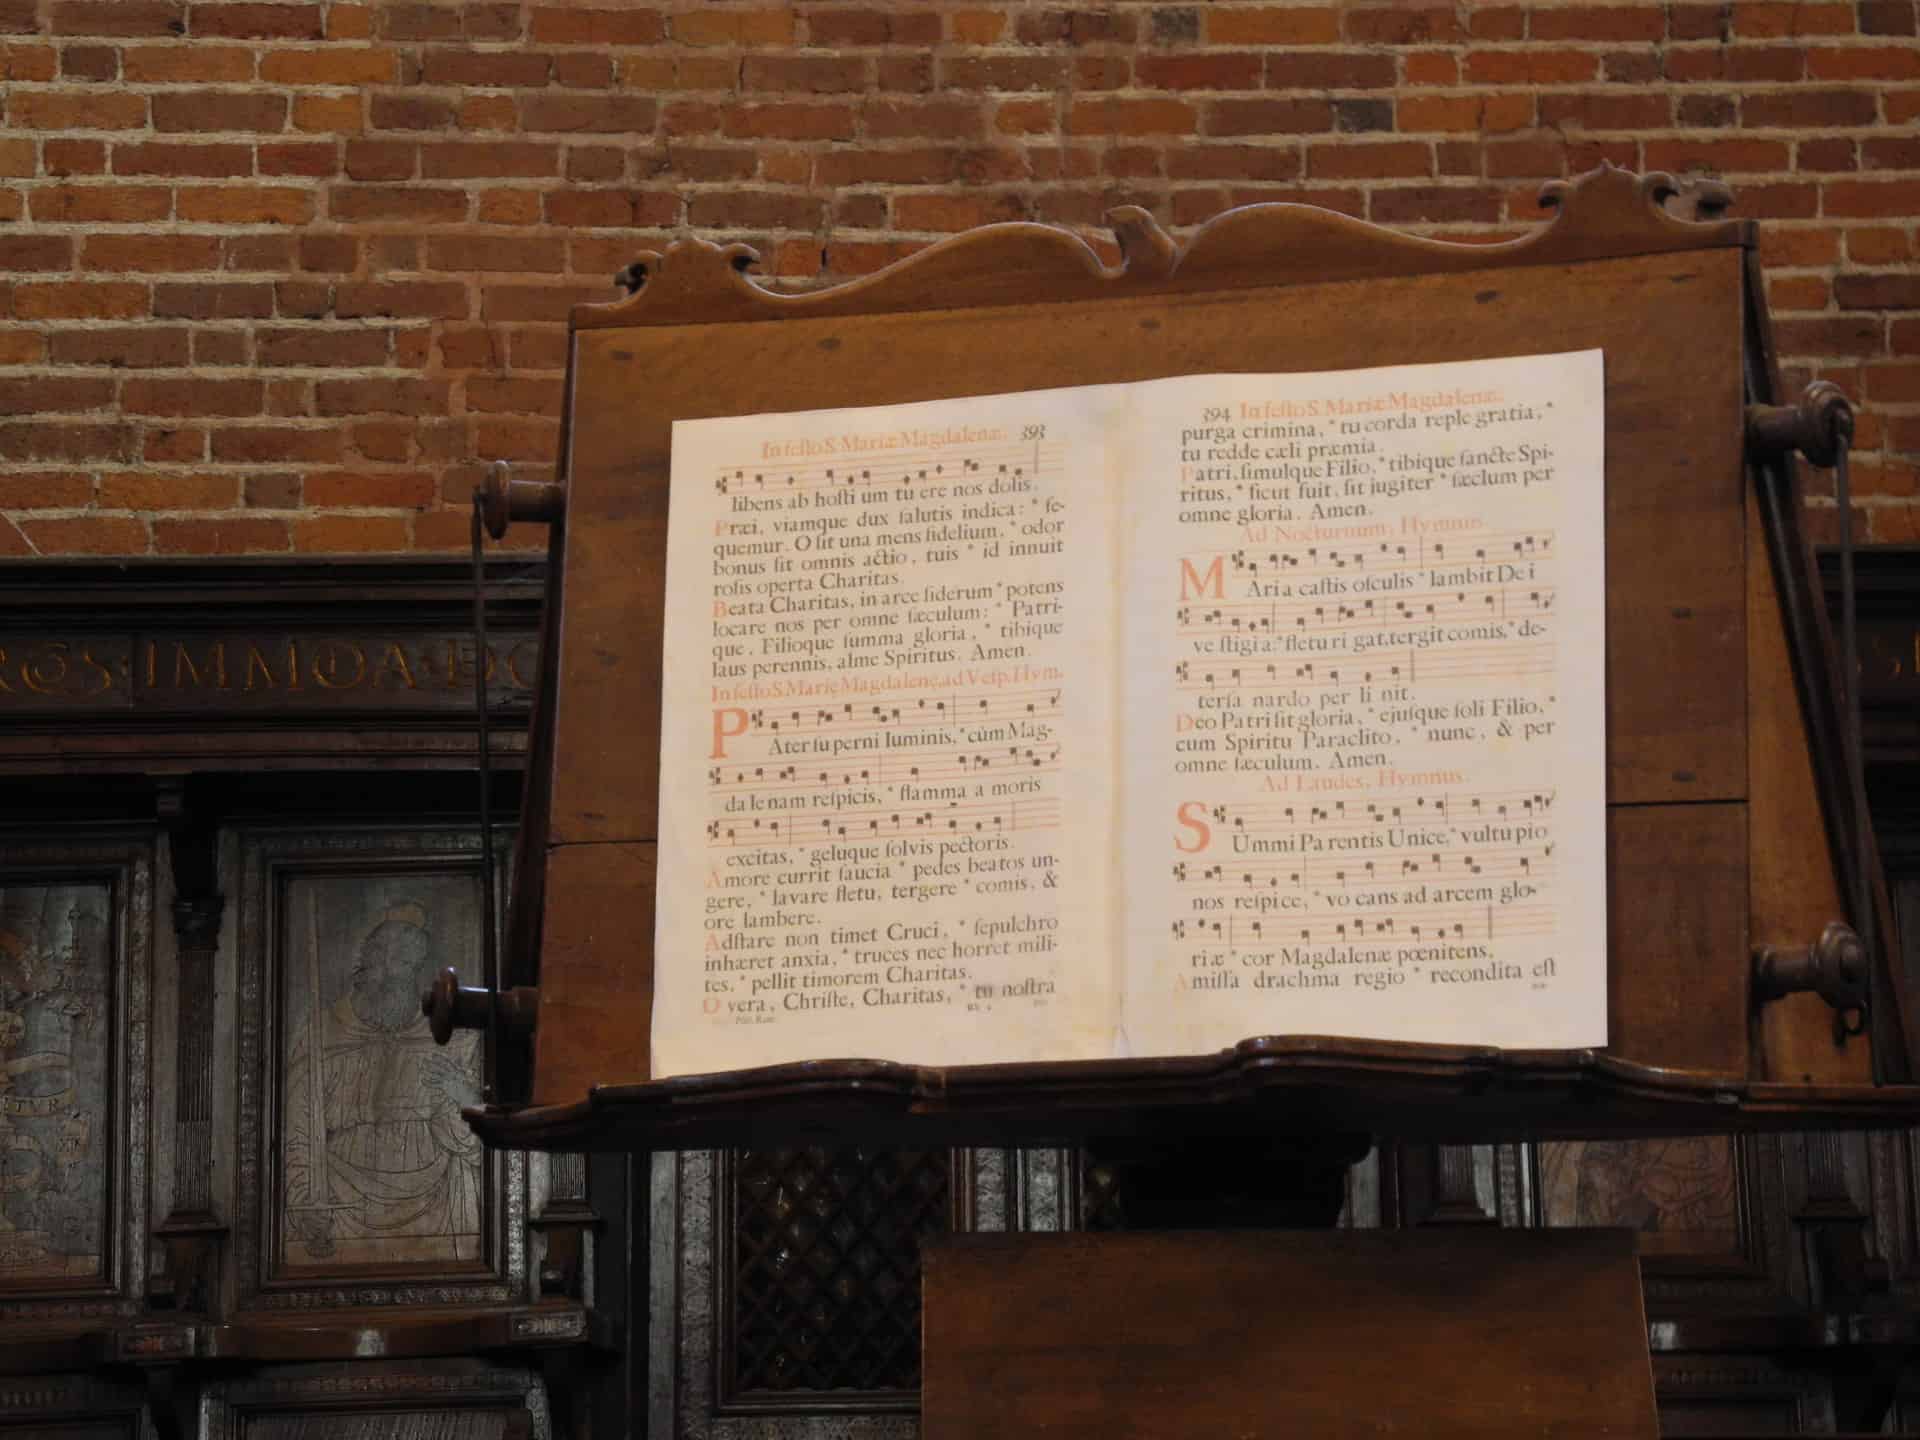 In festo S. Mariæ Magdalenæ. 393
libens ab hosti um tu ere nos dolis.
Præi, viamque dux salutis indica: * se-
quemur. O sit una mens fidelium, * odor
bonus sit omnis actio, tuis * id innuit
rosis operta Charitas.
Beata Charitas, in arce siderum * potens
locare nos per omne sæculum: * Patri-
que, Filioque summa gloria, * tibique
laus perennis, alme Spiritus. Amen.
In festo S. Marię Magdalenę, ad Vesp. Hym.
PAter su perni luminis, * cùm Mag-
da le nam respicis, * flamma a moris
excitas, * geluque solvis pectoris.
Amore currit saucia * pedes beatos un-
gere, * lavare fletu, tergere * comis, &
ore lambere.
Adstare non timet Cruci, * sepulchro
inhæret anxia, * truces nec horret mili-
tes, * pellit timorem Charitas.
O vera, Christe, Charitas, * tu nostra
394 In festo S. Mariæ Magdalenæ.
purga crimina, * tu corda reple gratia, *
tu redde cæli præmia.
Patri, simulque Filio, * tibique sancte Spi-
ritus, * sicut fuit, sit jugiter * sæclum per
omne gloria. Amen.
Ad Nocturnum, Hymnus.
MAri a castis osculis * lambit De i
ve stigi a: * fletu ri gat, tergit comis, * de-
tersa nardo per li nit.
Deo Patri sit gloria, * ejusque soli Filio, *
cum Spiritu Paraclito, * nunc, & per
omne sæculum. Amen.
Ad Laudes, Hymnus.
SUmmi Pa rentis Unice, * vultu pio
nos respice, * vo cans ad arcem glo-
riæ * cor Magdalenæ pœnitens.
Amissa drachma regio * recondita est
IMMOA